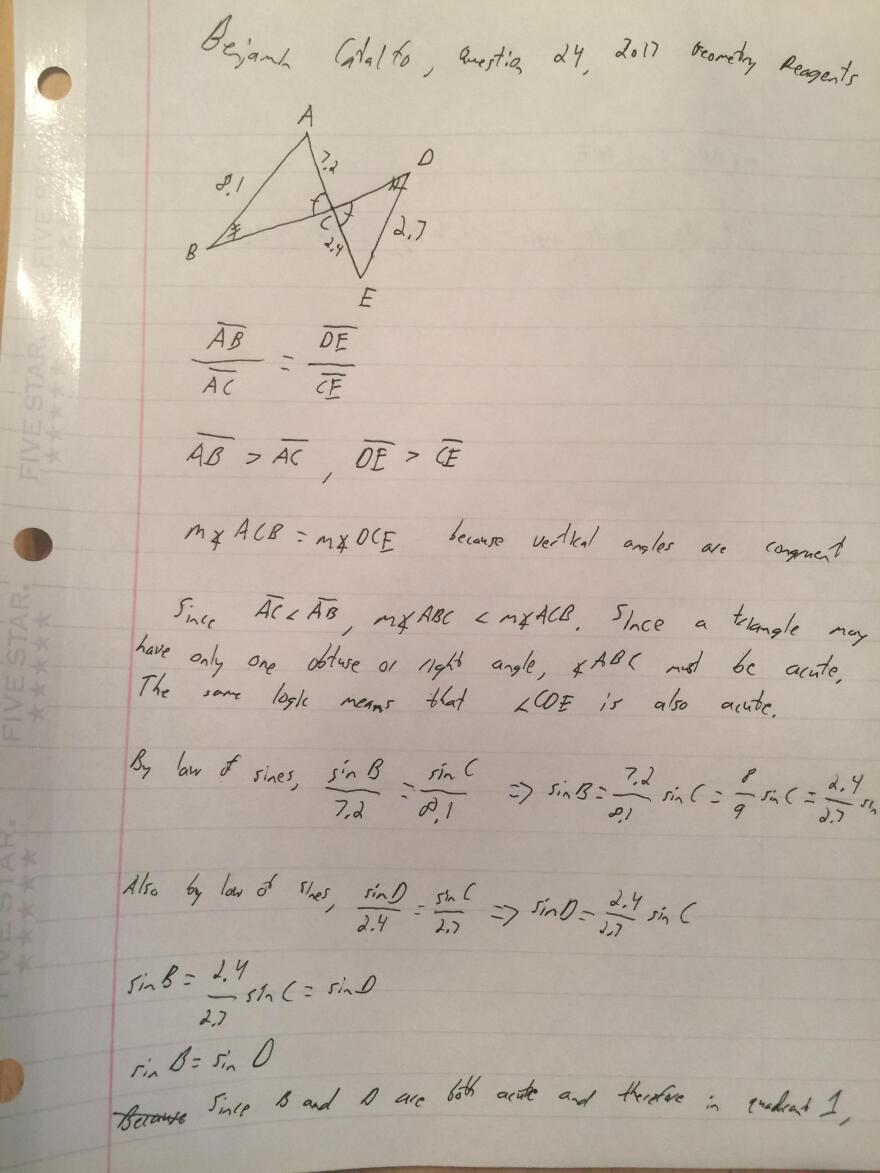 Benjamin Catalfo, Question 24, 2017 Geometry Reagents
A
7.2
D
8.1
C
2.4
2.7
B
E
AB/AC = DE/CE
AB > AC, DE > CE
m∡ACB = m∡DCE because vertical angles are congruent
Since AC < AB, m∡ABC < m∡ACB. Since a triangle may
have only one obtuse or right angle, ∡ABC must be acute.
The same logic means that ∠CDE is also acute.
By law of sines, sin B/7.2 = sin C/8.1 => sin B = 7.2/8.1 sin C = 8/9 sin C = 2.4/2.7 sin
Also by law of sines, sin D/2.4 = sin C/2.7 => sin D = 2.4/2.7 sin C
sin B = 2.4/2.7 sin C = sin D
sin B = sin D
Because Since B and D are both acute and therefore in quadrant 1,
FIVE STAR.
FIVE STAR.
FIVE STAR.
FIVE STAR.